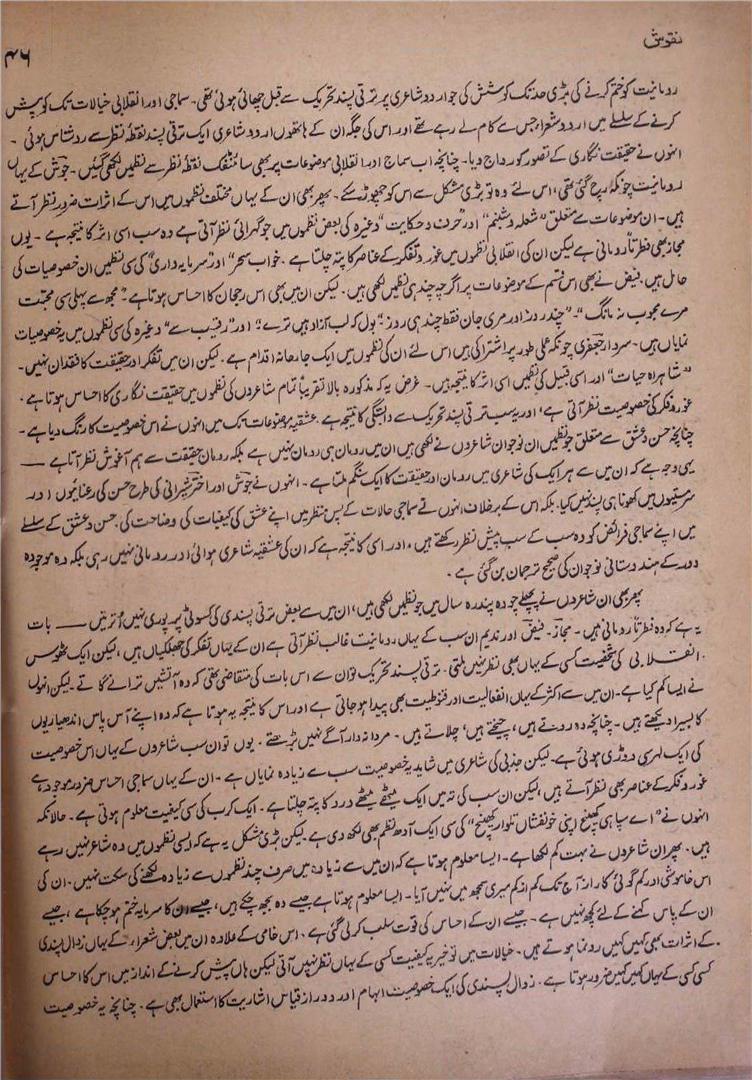 نقوش
۴۶
رومانیت کو ختم کرنے کی بڑی حد تک کوشش کی جو اردو شاعری پر ترقی پسند تحریک سے قبل چھائی ہوئی تھی۔ سماجی اور انقلابی خیالات تک کو پیش
کرنے کے سلسلے میں اردو شعرا جس سے کام لے رہے تھے اور اس کی جگہ ان کے ہاتھوں اردو شاعری ایک ترقی پسند نقطۂ نظر سے روشناس ہوئی۔
انہوں نے حقیقت نگاری کے تصور کو رواج دیا۔ چنانچہ اب سماج اور انقلابی موضوعات پر بھی سائنٹفک نقطۂ نظر سے نظمیں لکھی گئیں۔ جوش کے یہاں
رومانیت چونکہ رچ گئی تھی، اس لئے وہ تو بڑی مشکل سے اس کو چھوڑ سکے۔ پھر بھی ان کے یہاں مختلف نظموں میں اس کے اثرات ضرور نظر آتے
ہیں۔ ان موضوعات سے متعلق "شعلہ و شبنم" اور "حرف و حکایت" وغیرہ کی بعض نظموں میں جو گہرائی نظر آتی ہے وہ سب اسی اثر کا نتیجہ ہے۔ یوں
مجاز بھی فطرتاً رومانی ہے لیکن ان کی انقلابی نظموں میں غور و تفکر کے عناصر کا پتہ چلتا ہے۔ خواب سحر" اور "سرمایہ داری" کی سی نظمیں ان خصوصیات کی
حامل ہیں۔ فیض نے بھی اس قسم کے موضوعات پر اگرچہ چند ہی نظمیں لکھی ہیں۔ لیکن ان میں بھی اس رجحان کا احساس ہوتا ہے۔ "مجھ سے پہلی سی محبت
مرے محبوب نہ مانگ"۔ "چند روز اور مری جان فقط چند ہی روز" "بول کہ لب آزاد ہیں ترے" اور "رقیب سے" وغیرہ کی سی نظموں میں یہ خصوصیات
نمایاں ہیں۔ سردار جعفری چونکہ عملی طور پر اشتراکی ہیں اس لئے ان کی نظموں میں ایک جارحانہ اقدام ہے۔ لیکن ان میں تفکر اور حقیقت کا فقدان نہیں۔
"شاہراہ حیات" اور اسی قبیل کی نظمیں اسی اثر کا نتیجہ ہیں۔ غرض یہ کہ مذکورہ بالا تقریباً تمام شاعروں کی نظموں میں حقیقت نگاری کا احساس ہوتا ہے۔
غور و فکر کی خصوصیت نظر آتی ہے، اور یہ سب ترقی پسند تحریک سے وابستگی کا نتیجہ ہے۔ عشقیہ موضوعات تک میں انہوں نے اس خصوصیت کا رنگ دیا ہے۔
چنانچہ حسن و عشق سے متعلق جو نظمیں ان نوجوان شاعروں نے لکھی ہیں ان میں رومان ہی رومان نہیں ہے بلکہ رومان حقیقت سے ہم آغوش نظر آتا ہے ——
یہی وجہ ہے کہ ان میں سے ہر ایک کی شاعری میں رومان اور حقیقت کا ایک سنگم ملتا ہے۔ انہوں نے جوش اور اختر شیرانی کی طرح حسن کی رعنائیوں اور
سرمستیوں میں کھونا ہی پسند نہیں کیا۔ بلکہ اس کے برخلاف انہوں نے سماجی حالات کے پس منظر میں اپنے عشق کی کیفیات کی وضاحت کی۔ حسن و عشق کے سلسلے
میں اپنے سماجی فرائض کو وہ سب کے سب پیش نظر رکھتے ہیں، اور اسی کا نتیجہ ہے کہ ان کی عشقیہ شاعری ہوائی اور رومانی نہیں رہی بلکہ وہ موجودہ
دور کے ہندوستانی نوجوان کی صحیح ترجمان بن گئی ہے۔
پھر بھی ان شاعروں نے پچھلے چودہ پندرہ سال میں جو نظمیں لکھی ہیں، ان میں سے بعض ترقی پسندی کی کسوٹی پر پوری نہیں اترتیں —— بات
یہ ہے کہ وہ فطرتاً رومانی ہیں۔ مجاز۔ فیض اور ندیم ان سب کے یہاں رومانیت غالب نظر آتی ہے ان کے یہاں تفکر کی جھلکیاں ہیں، لیکن ایک ٹھوس
انقلابی کی شخصیت کسی کے یہاں بھی نظر نہیں ملتی۔ ترقی پسند تحریک تو ان سے اس بات کی متقاضی تھی کہ وہ آتشیں ترانے گاتے۔ لیکن انہوں
نے ایسا کم کیا ہے۔ ان میں سے اکثر کے یہاں انفعالیت اور قنوطیت بھی پیدا ہو جاتی ہے اور اس کا نتیجہ یہ ہوتا ہے کہ وہ اپنے آس پاس اندھیاریوں
کا بسیرا دیکھتے ہیں۔ چنانچہ وہ روتے ہیں، چیختے ہیں، چلاتے ہیں۔ مردانہ وار آگے نہیں بڑھتے۔ یوں تو ان سب شاعروں کے یہاں اس خصوصیت
کی ایک لہر سی دوڑی ہوئی ہے۔ لیکن جذبی کی شاعری میں شاید یہ خصوصیت سب سے زیادہ نمایاں ہے۔ ان کے یہاں سماجی احساس ضرور موجود ہے
غور و فکر کے عناصر بھی نظر آتے ہیں، لیکن ان سب کی تہ میں ایک میٹھے میٹھے درد کا پتہ چلتا ہے۔ ایک کرب کی سی کیفیت معلوم ہوتی ہے۔ حالانکہ
انہوں نے "اے سپاہی کھینچ اپنی خونفشاں تلوار کھینچ" کی سی ایک آدھ نظم بھی لکھ دی ہے۔ لیکن بڑی مشکل یہ ہے کہ ایسی نظموں میں وہ شاعر نہیں رہے
ہیں۔ پھر ان شاعروں نے بہت کم لکھا ہے۔ ایسا معلوم ہوتا ہے کہ ان میں سے زیادہ میں صرف چند نظموں سے زیادہ لکھنے کی سکت نہیں۔ ان کی
اس خاموشی اور کم گوئی کا راز آج تک کم از کم میری سمجھ میں نہیں آیا۔ ایسا معلوم ہوتا ہے جیسے وہ بجھ چکے ہیں، جیسے ان کا سرمایہ ختم ہو چکا ہے، جیسے
ان کے پاس کہنے کے لئے کچھ نہیں ہے۔ جیسے ان کے احساس کی قوت سلب کر لی گئی ہے۔ اس خامی کے علاوہ ان میں بعض شعراء کے یہاں زوال پسندی
کے اثرات بھی کہیں کہیں رونما ہوتے ہیں۔ خیالات میں تو خیر یہ کیفیت کسی کے یہاں نظر نہیں آتی لیکن ہاں پیش کرنے کے انداز میں اس کا احساس
کسی کسی کے یہاں کہیں کہیں ضرور ہوتا ہے۔ زوال پسندی کی ایک خصوصیت ابہام اور دور از قیاس اشاریت کا استعمال بھی ہے۔ چنانچہ یہ خصوصیت